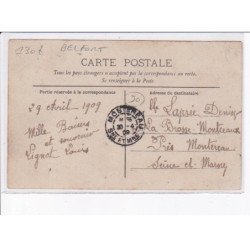 1306 BELFORT
CARTE POSTALE
Tous les pays étrangers n'acceptent pas la correspondance au recto.
Se renseigner à la Poste.
Partie réservée à la correspondance
Adresse du destinataire
29 Avril - 1909
Mille Baisers
et souvenir
Louis
30
Denis
La Brosse-Montceaux
Près Montereau
Seine et Marne